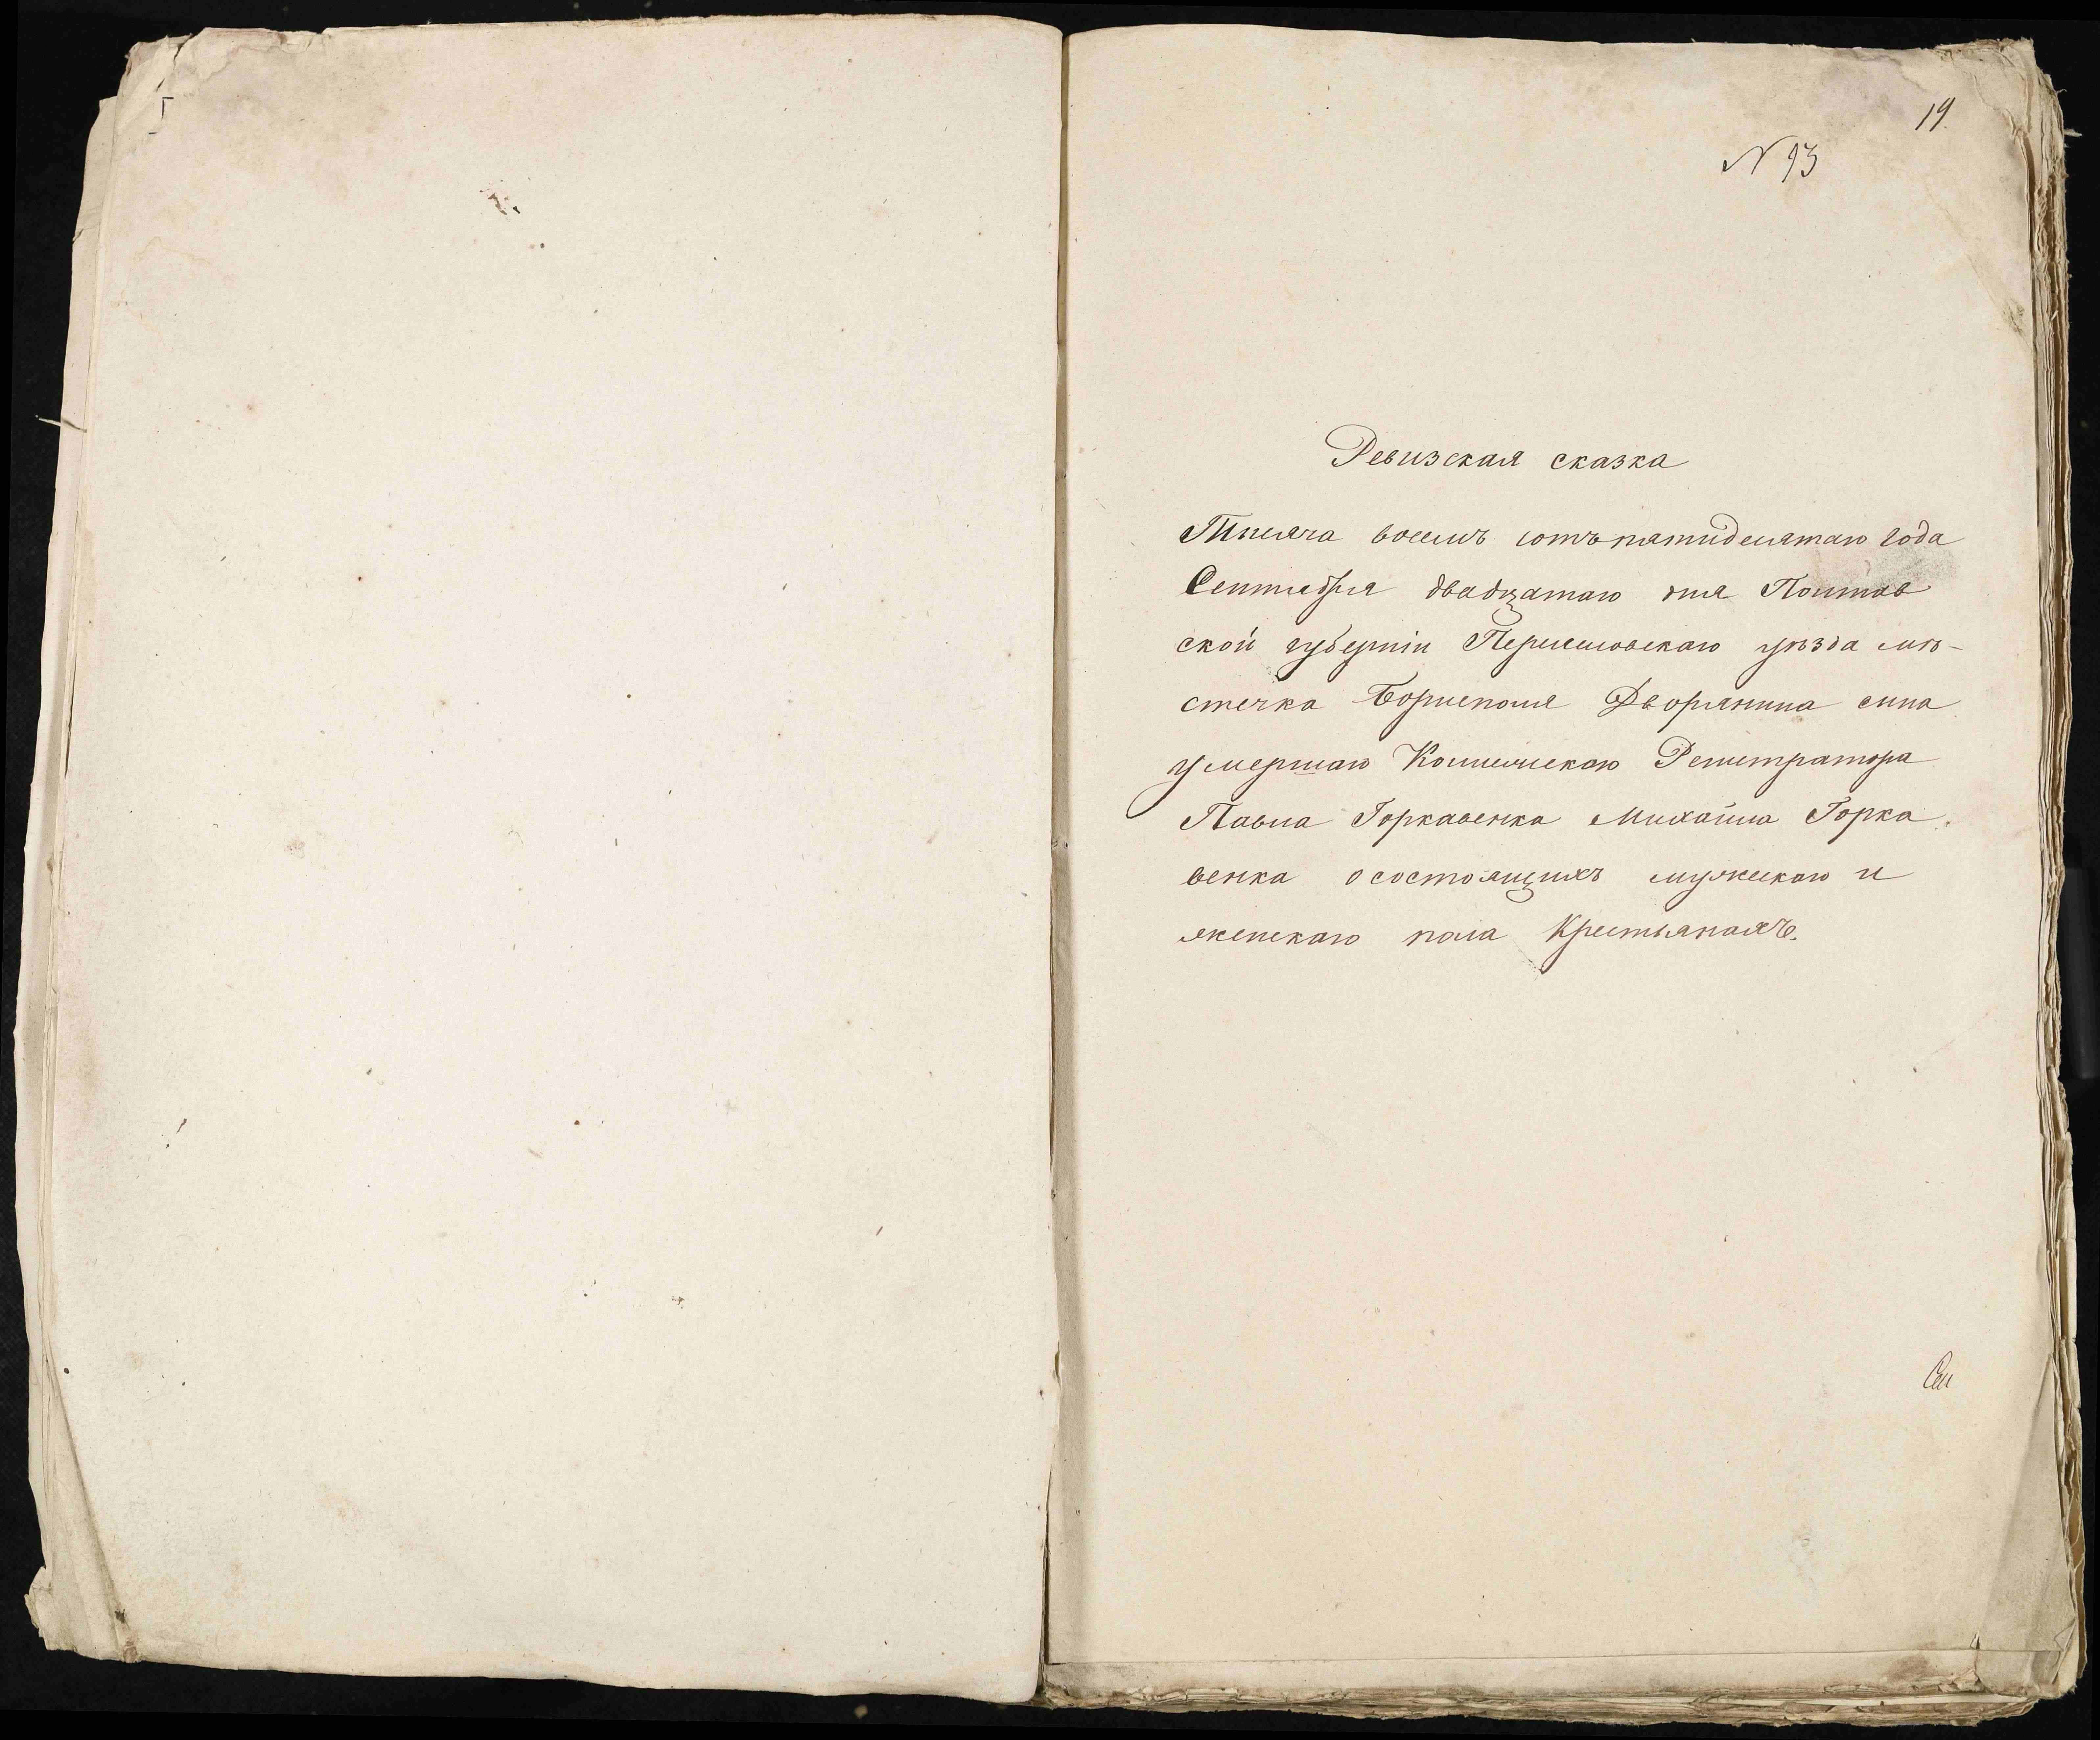 19.
N 93
Ревизская сказка
Тысяча восемъ сотъ пятидесятаго года
Сентября двадцатаго дня Полтав
ской губерніи Переяславскаго уѣзда мѣ-
стечка Борисполя Дворянина сына
умершаго Коллежскаго Регистратора
Павла Горкавенка Михайла Горка
венка о состоящихъ мужескаго и
женскаго пола Крестьянахъ.